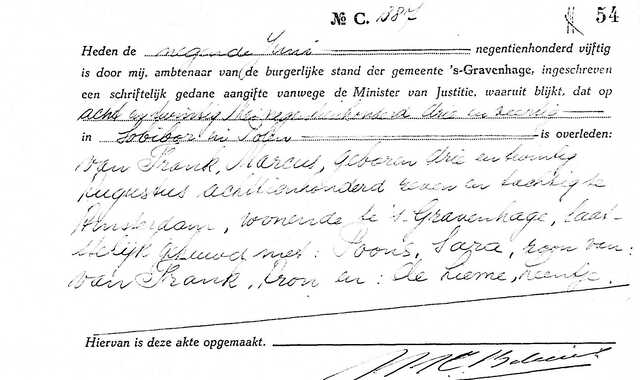 No C. 887 54
Heden de negende Juni negentienhonderd vijftig
is door mij, ambtenaar van de burgerlijke stand der gemeente 's-Gravenhage, ingeschreven
een schriftelijk gedane aangifte vanwege de Minister van Justitie, waaruit blijkt, dat op
acht en twintig Mei negentienhonderd drie en veertig
in Sobibor in Polen is overleden:
van Frank, Marcus, geboren drie en twintig
Augustus achttienhonderd zeven en tachtig te
Amsterdam, wonende te 's Gravenhage, laat-
stelijk gehuwd met: Poons, Sara, zoon van:
van Frank, Aron en: de Lieme, Leentje.
Hiervan is deze akte opgemaakt.